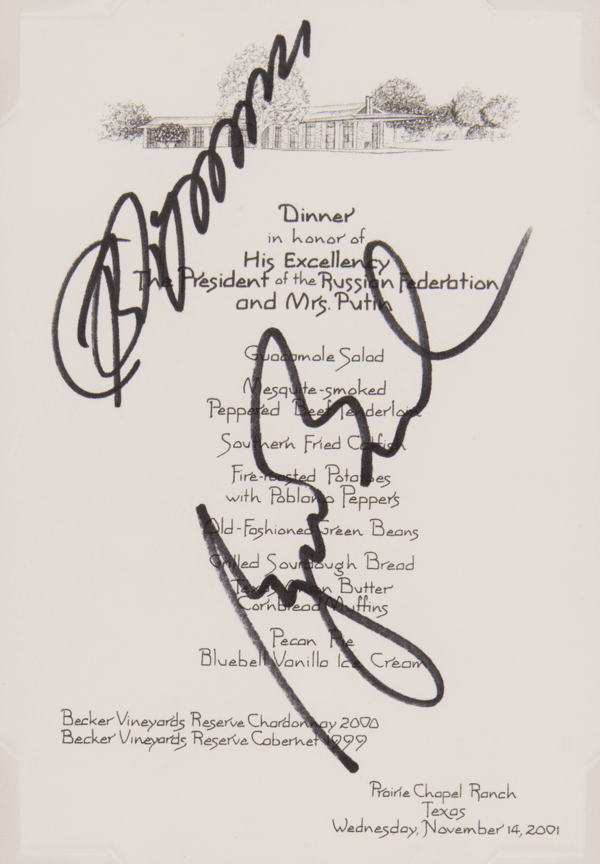 Dinner
in honor of
His Excellency
The President of the Russian Federation
and Mrs. Putin
Guacamole Salad
Mesquite-smoked
Peppered Beef Tenderloin
Southern Fried Catfish
Fire-roasted Potatoes
with Poblano Peppers
Old-Fashioned Green Beans
Grilled Sourdough Bread
Butter
Cornbread Muffins
Pecan Pie
Bluebell Vanilla Ice Cream
Becker Vineyards Reserve Chardonnay 2000
Becker Vineyards Reserve Cabernet 1999
Prairie Chapel Ranch
Texas
Wednesday, November 14, 2001